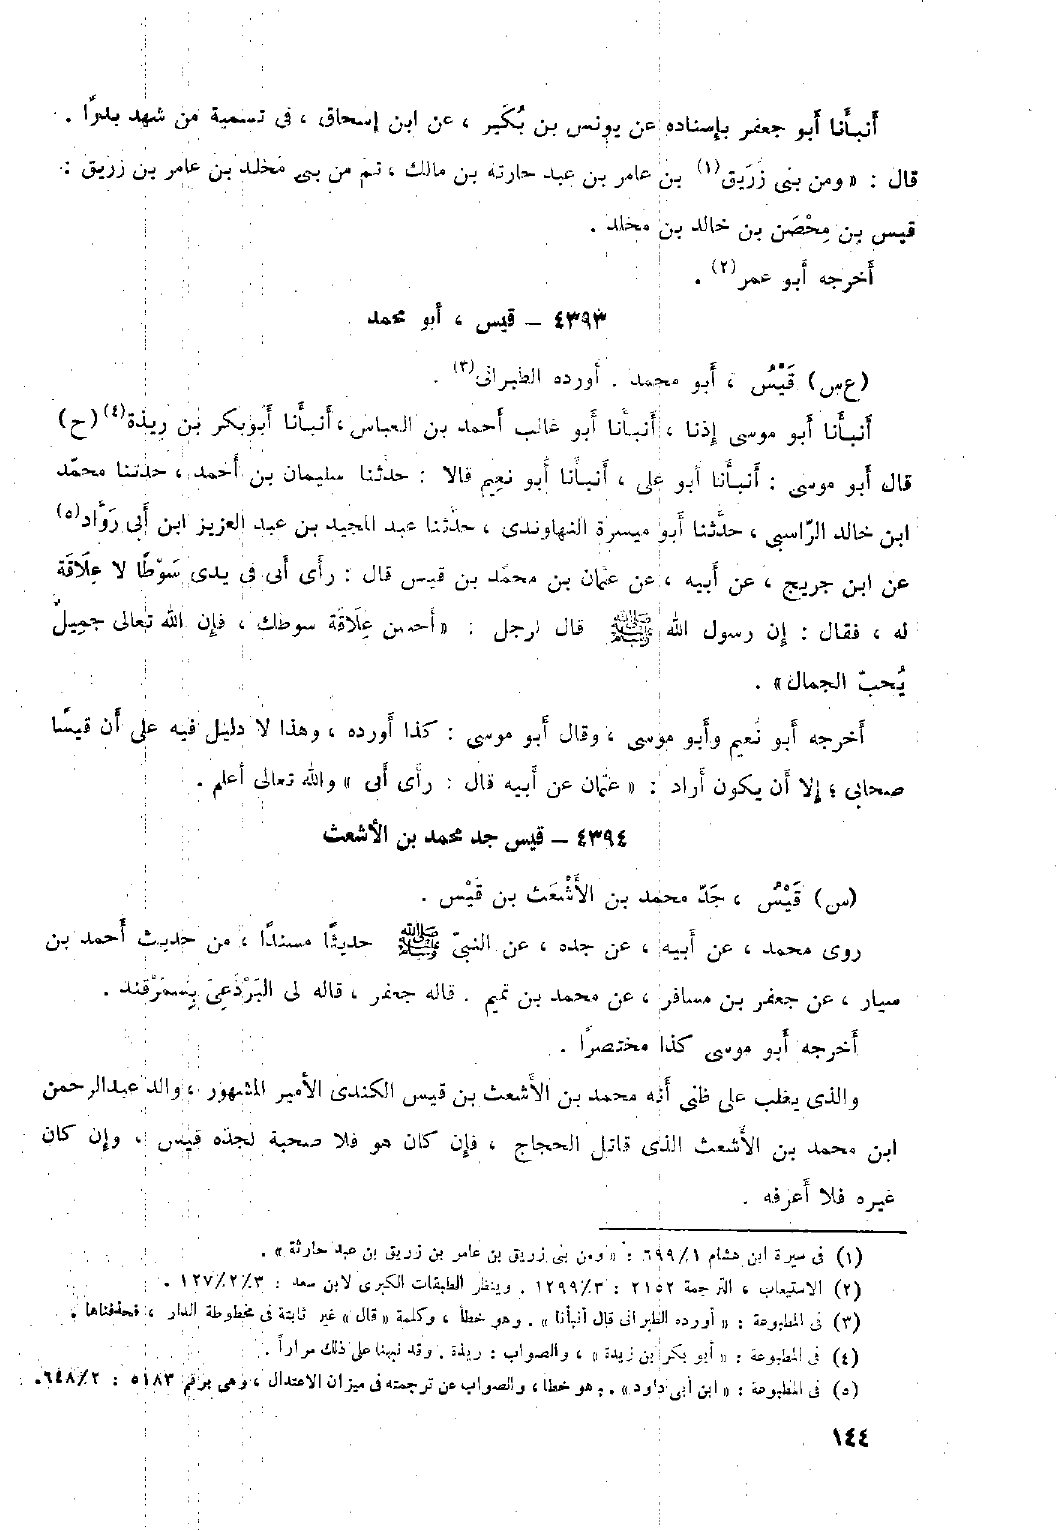 أَنبأَنا أَبو جعفر بإِسناده عن يونس بن بُكَير ، عن ابن إِسحاق ، فى تسمية من شهد بدرًا .
قال : « ومن بنى زُرَيق(١) بن عامر بن عبد حارثة بن مالك ، ثم من بنى مخلد بن عامر بن زريق :
قيس بن مِحْصَن بن خالد بن مخلد .
أَخرجه أَبو عمر(٢) .
٤٣٩٣ – قيس ، أبو محمد
(ع س) قَيْسُ ، أَبو محمد . أورده الطبرانى(٣) .
أَنبأَنا أَبو موسى إِذنا ، أَنبأَنا أَبو غالب أحمد بن العباس ، أَنبأَنا أَبوبكر بن رِيذة(٤) (ح)
قال أَبو موسى : أَنبأَنا أَبو على ، أَنبأَنا أَبو نعيم قالا : حدثنا سليمان بن أَحمد ، حدثنا محمّد
ابن خالد الرّاسبى ، حدَّثنا أَبو ميسرة النهاوندى ، حدَّثنا عبد المجيد بن عبد العزيز ابن أَبى رَوَّاد(٥)
عن ابن جريج ، عن أَبيه ، عن عثمان بن محمَّد بن قيس قال : رأَى أَبى فى يدى سَوْطًا لا عِلَاقَة
له ، فقال : إِن رسول الله ﷺ قال لرجل : «أحسن عِلَاقة سوطك ، فإِن الله تعالى جميلٌ
يُحبّ الجمال» .
أَخرجه أَبو نُعيم وأَبو موسى ، وقال أَبو موسى : كذا أَورده ، وهذا لا دليل فيه على أَن قيسًا
صحابى ؛ إِلا أَن يكون أَراد : « عثمان عن أَبيه قال : رأَى أَبى » والله تعالى أعلم .
٤٣٩٤ – قيس جد محمد بن الأشعث
(س) قَيْسُ ، جَدّ محمد بن الأَشْعَث بن قَيْس .
روى محمد ، عن أَبيه ، عن جده ، عن النبىّ ﷺ حديثًا مسندًا ، من حديث أَحمد بن
سيار ، عن جعفر بن مسافر ، عن محمد بن تميم . قاله جعفر ، قاله لى البَرْذَعِىّ بِسَمَرْقند .
أَخرجه أَبو موسى كذا مختصرًا .
والذى يغلب على ظنى أَنه محمد بن الأَشعث بن قيس الكندى الأَمير المشهور ، والد عبدالرحمن
ابن محمد بن الأَشعث الذى قاتل الحجاج ، فإِن كان هو فلا صحبة لجدّه قيس ، وإِن كان
غيره فلا أَعرفه .
(١) فى سيرة ابن هشام ١/٦٩٩ : « ومن بنى زريق بن عامر بن زريق بن عبد حارثة » .
(٢) الاستيعاب ، الترجمة ٢١٥٢ : ٣/١٢٩٩ . وينظر الطبقات الكبرى لابن سعد : ٣/٢/١٢٧ .
(٣) فى المطبوعة : « أورده الطبرانى قال أنبأنا » . وهو خطأ ، وكلمة « قال » غير ثابتة فى مخطوطة الدار ، فحذفناها .
(٤) فى المطبوعة : « أبو بكر بن زيدة » ، والصواب : ريذة . وقد نبهنا على ذلك مراراً .
(٥) فى المطبوعة : « ابن أبى داود » . وهو خطأ ، والصواب عن ترجمته فى ميزان الاعتدال ، وهى برقم ٥١٨٣ : ٢/٦٤٨ .
١٤٤